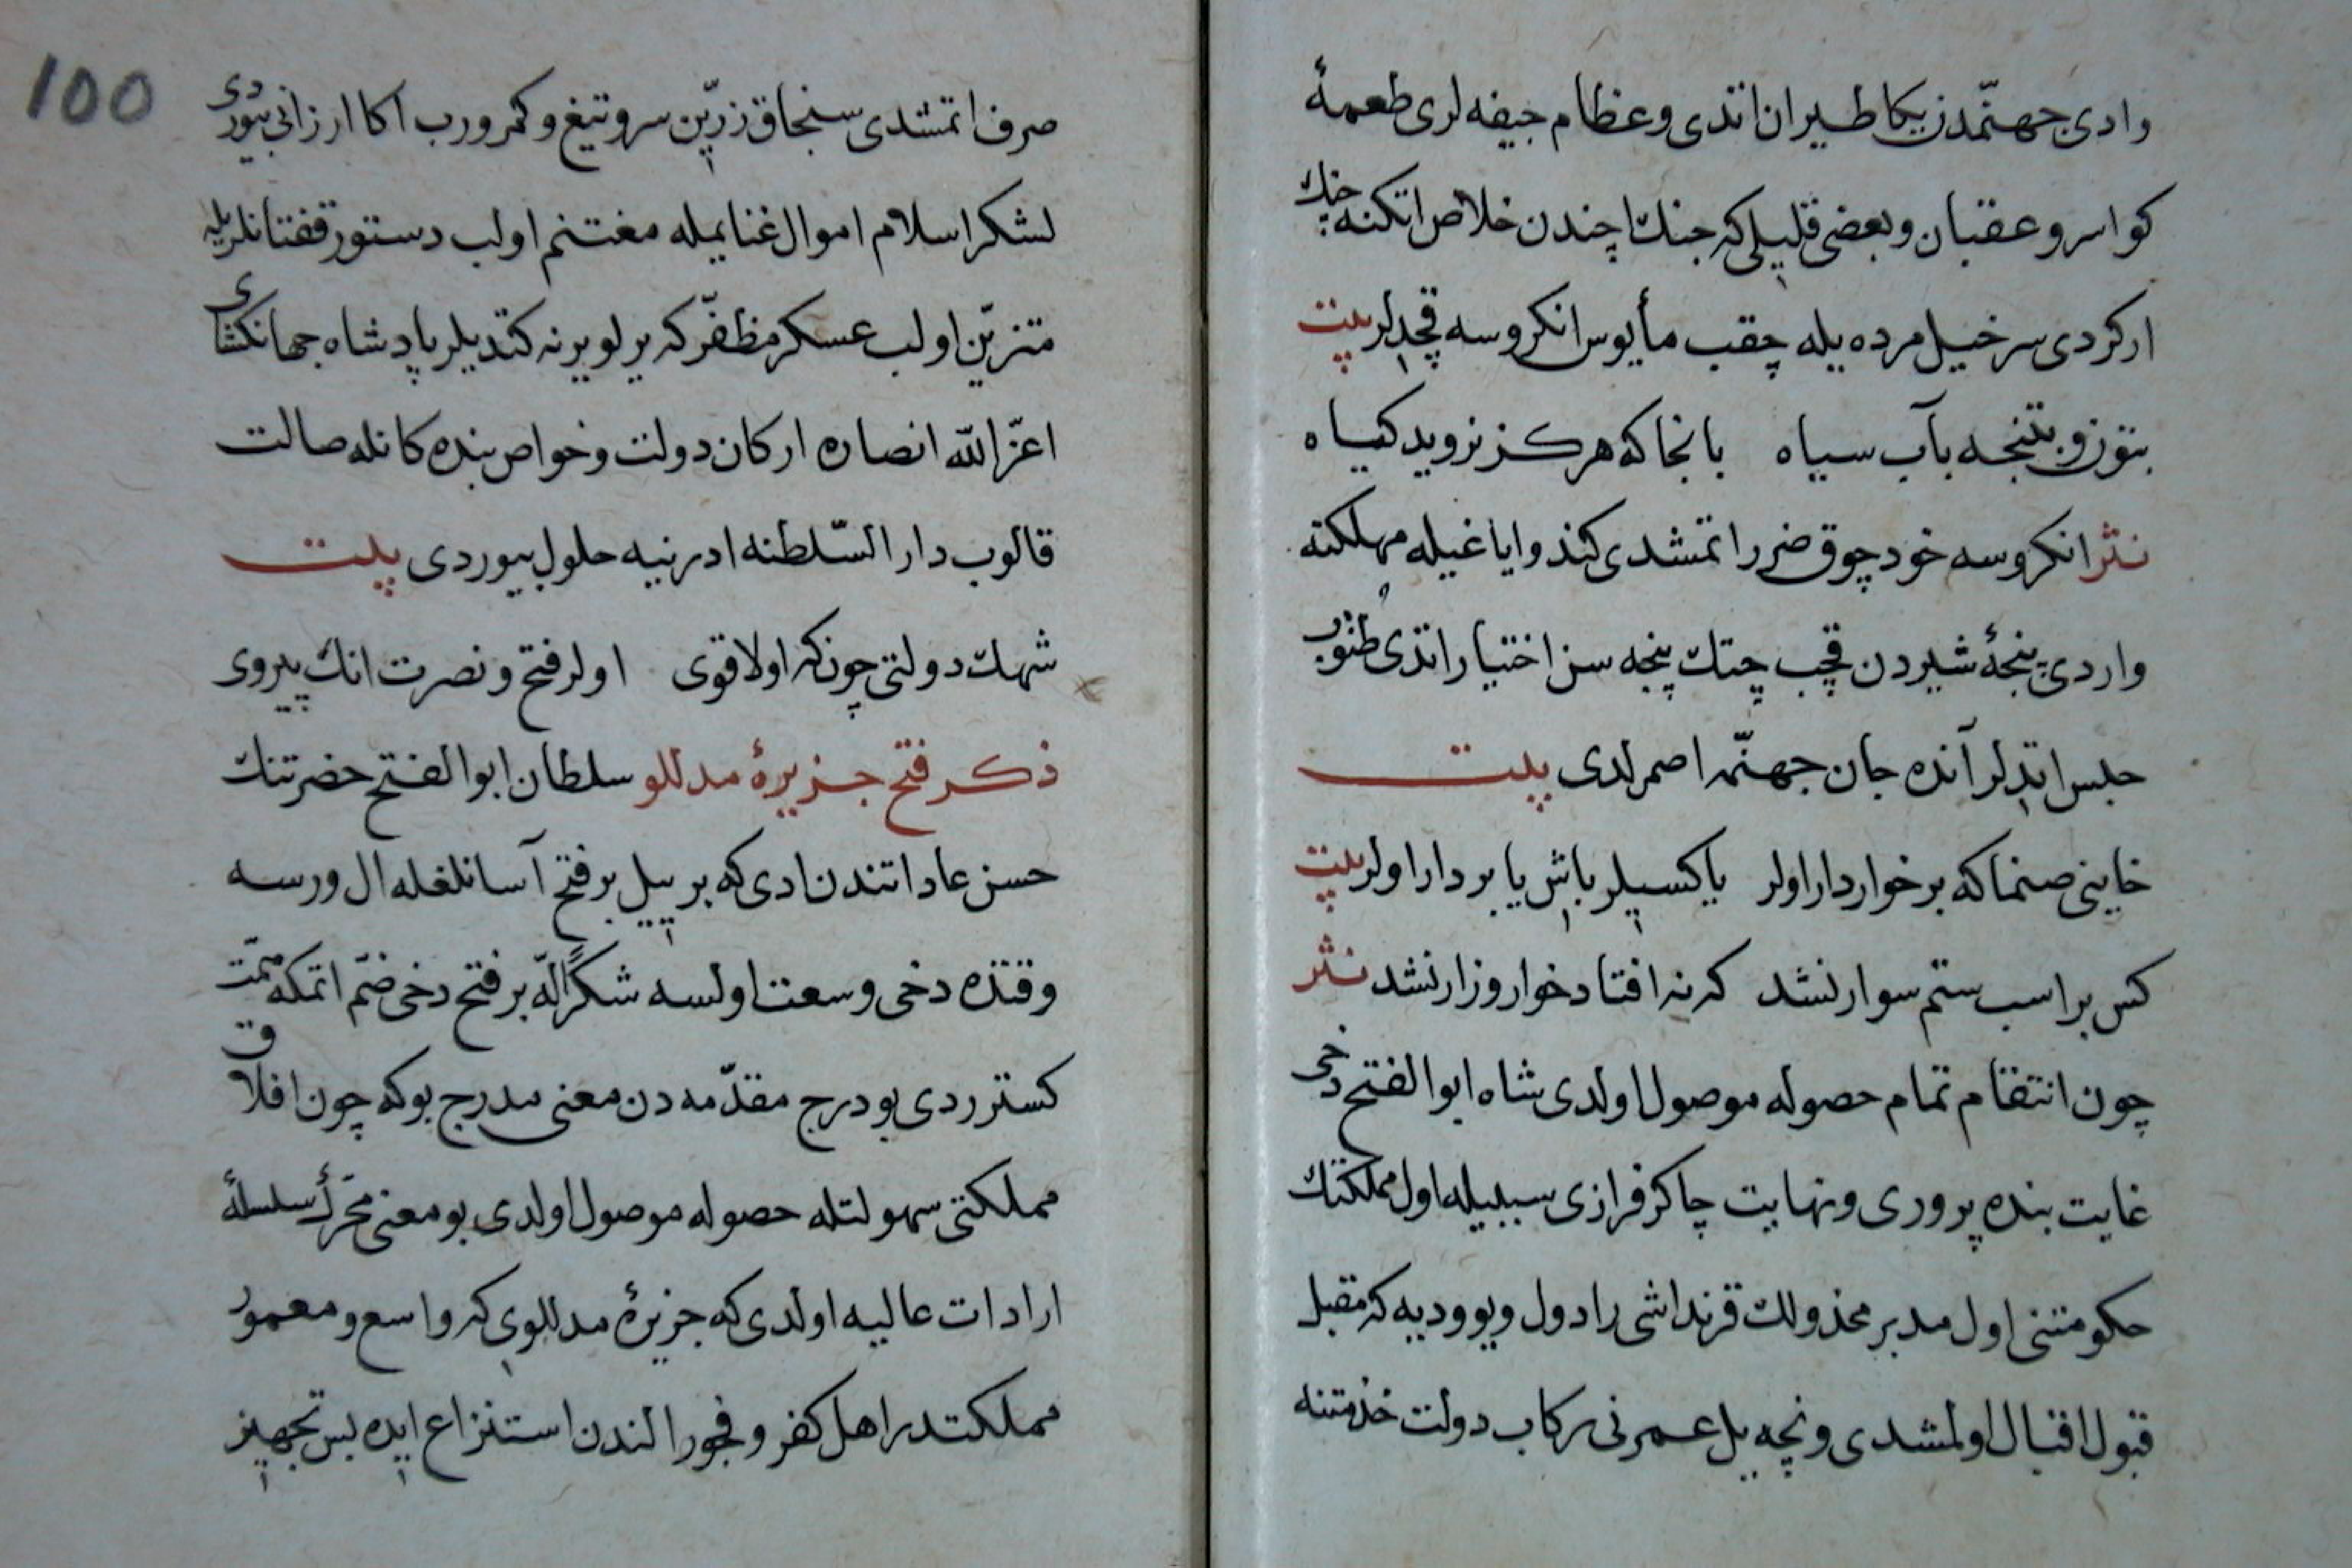 وادیِ جهنّمدن یکا طیران اتدی و عظام جیفه لری طعمهٔ
کواسر و عقبان و بعضی قلیلی که جنک اچندن خلاص اتکنه جنک
ارکردی سرخیل مرده یله چقب مأیوس انکروسه قچدلر بیت
بتوزو بتنجه بآب سیاه بانجا که هرکز نروید کیاه
نثر انکروسه خود چوق ضرر اتمشدی کندو ایاغیله مهلکته
واردی پنجهٔ شیردن قچب چتک پنجه سن اختیار اتدی طتوب
حبس اتدلر آنده جان جهنّمه اصمرلدی بیت
خاینی صنما که برخوردار اولر یا کسیلر باش یا بر دار اولر بیت
کس بر اسب ستم سوار نشد که نه افتاد خوار و زار نشد نثر
چون انتقام تمام حصوله موصول اولدی شاه ابو الفتح دخی
غایت بنده پروری و نهایت چاکر فرازی سببیله اول مملکتک
حکومتنی اول مدبر مخذولک قرنداشی رادول ویوودیه که مقبل
قبول اقبال اولمشدی و نچه ییل عمرنی رکاب دولت خذمتنه
100
صرف اتمشدی سنجاق زرّین سر و تیغ و کمر ورب اکا ارزانی بیوردی
لشکر اسلام اموال غنایمیله مغتنم اولب دستور قفتانلریله
متزیّن اولب عسکر مظفّر که یرلو یرنه کتدیلر پادشاه جهانکشای
اعزّ اللّه انصاره ارکان دولت و خواص بنده کانله صالت
قالوب دار السّلطنه ادرنییه حلول بیوردی بیت
شهک دولتی چونکه اولا قوی اولر فتح و نصرت انک پیروی
ذکر فتح جزیرهٔ مدللو سلطان ابو الفتح حضرتنک
حسن عاداتندن ادی که بر ییل بر فتح آسانلغله ال ورسه
وقتده دخی وسعت اولسه شکرًا للّه بر فتح دخی ضمّ اتمکه همّت
کسترردی بو درج مقدّمه دن معنی مدرج بو که چون افلاق
مملکتی سهولتله حصوله موصول اولدی بو معنی محرّک سلسلهٔ
ارادات عالیه اولدی که جزیرهٔ مدللویی که واسع و معمور
مملکتدر اهل کفر و فجور الندن استنزاع ایده پس تجهیز